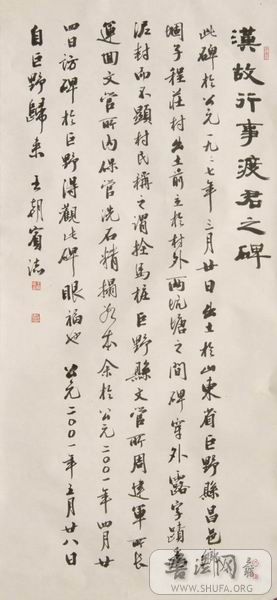 漢故行事渡君之碑
此碑於公元一九二七年三月廿日出土於山東省巨野縣昌邑鄉
堌子程莊村出土前立於村外兩坑塘之間碑穿外露字蹟
泥封而不顯村民稱之謂拴馬樁巨野縣文管所周建軍所長
運回文管所內保管洗石精搨數本余於公元二〇〇一年四月廿
四日訪碑於巨野得觀此碑眼福也 公元二〇〇一年五月廿八日
自巨野歸來王朝賓誌
书法网
WWW.SHUFA.ORG